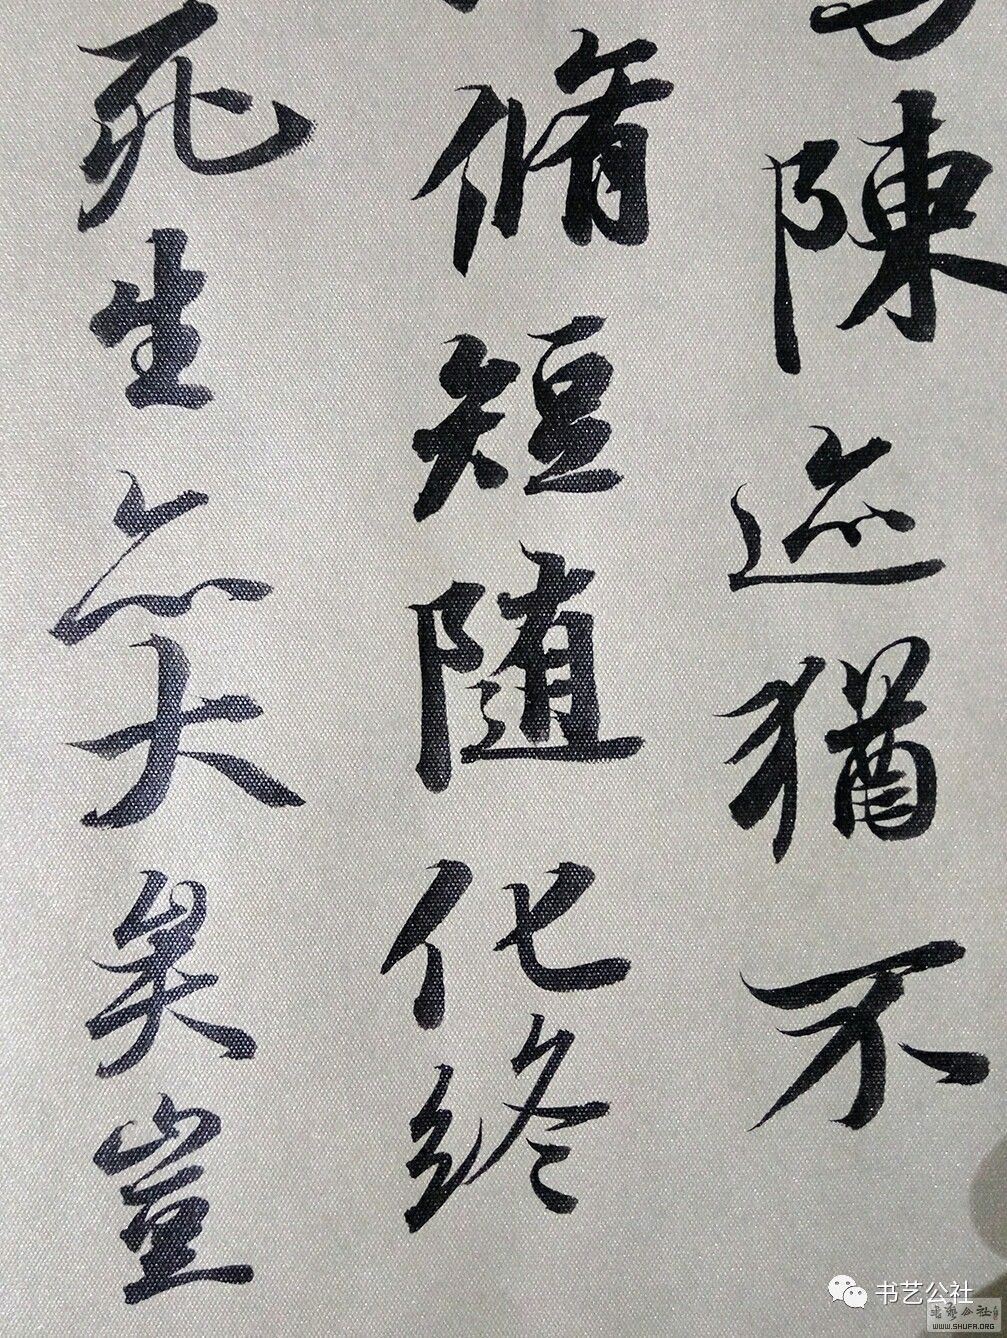 陳迹猶不
脩短随化終
死生亦大矣豈
书艺公社
书艺公社
WWW.SHUFA.ORG